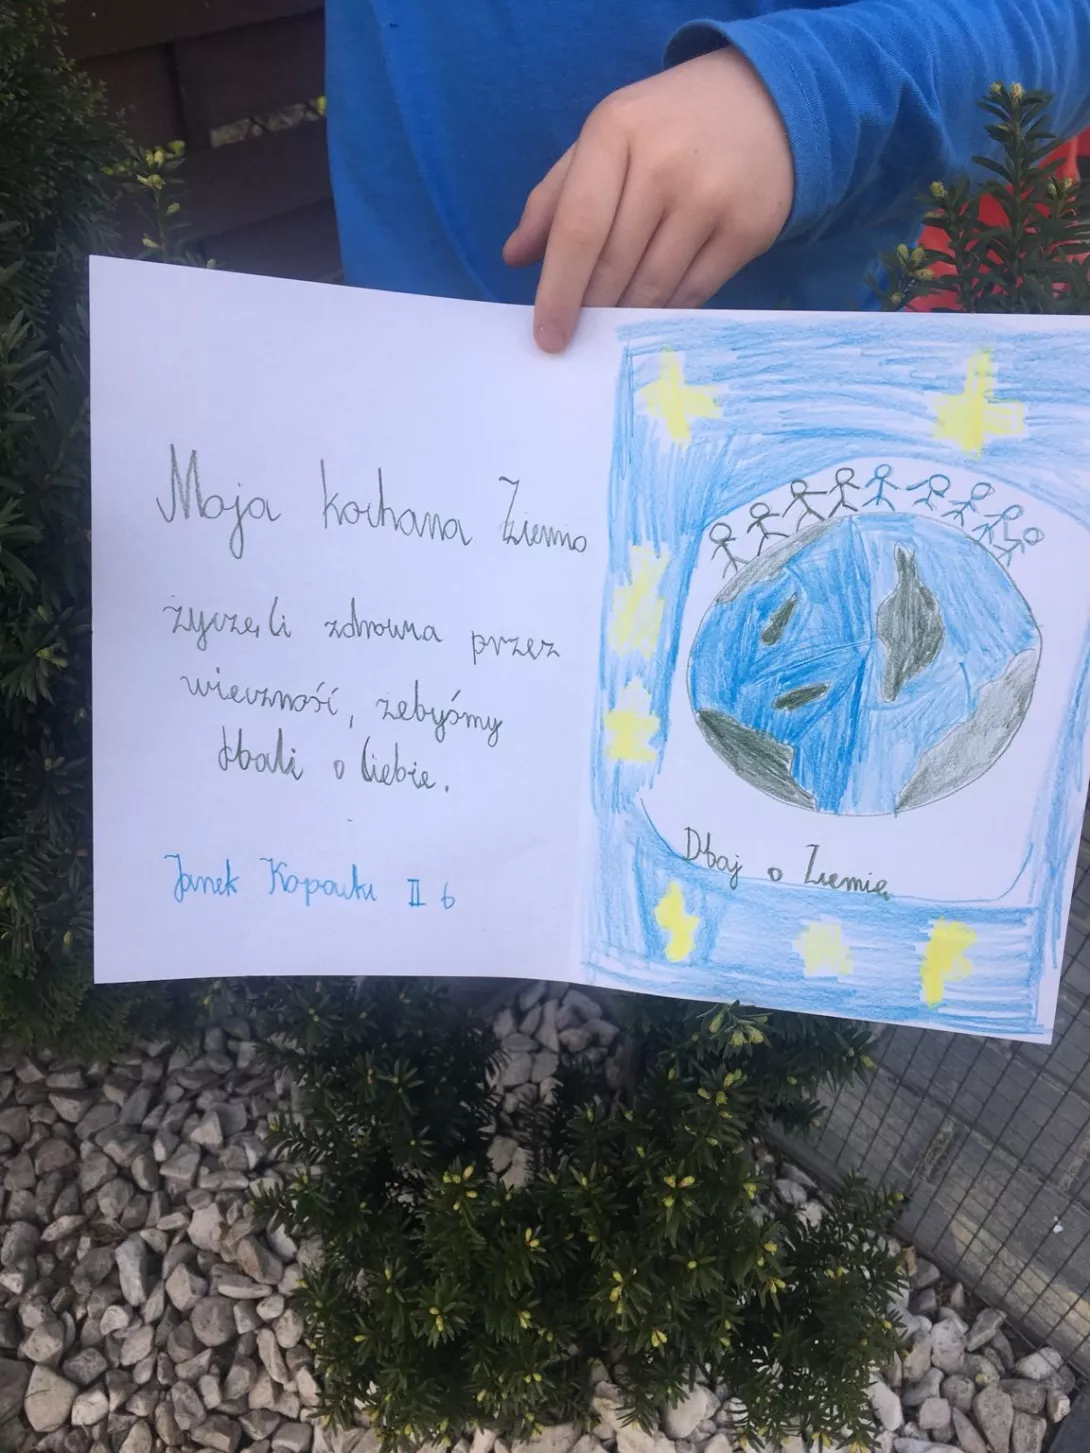 Moja kochana Ziemio
życzę Ci zdrowia przez
wieczność, żebyśmy
dbali o Ciebie.
Janek II b
Dbaj o Ziemię